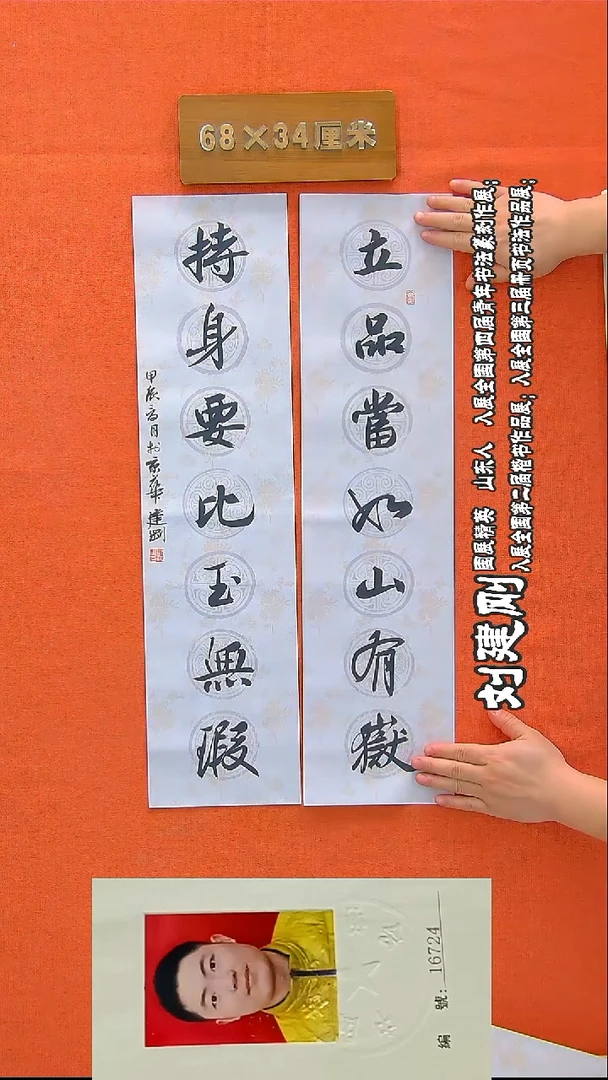 68×34厘米
立品當如山有嶽
持身要比玉無瑕
甲辰高月於京華建剛
刘建刚
国展精英 山东人 入展全国第四届青年书法篆刻作展;
入展全国第二届楷书作品展; 入展全国第三届册页书法作品展;
编號:16724